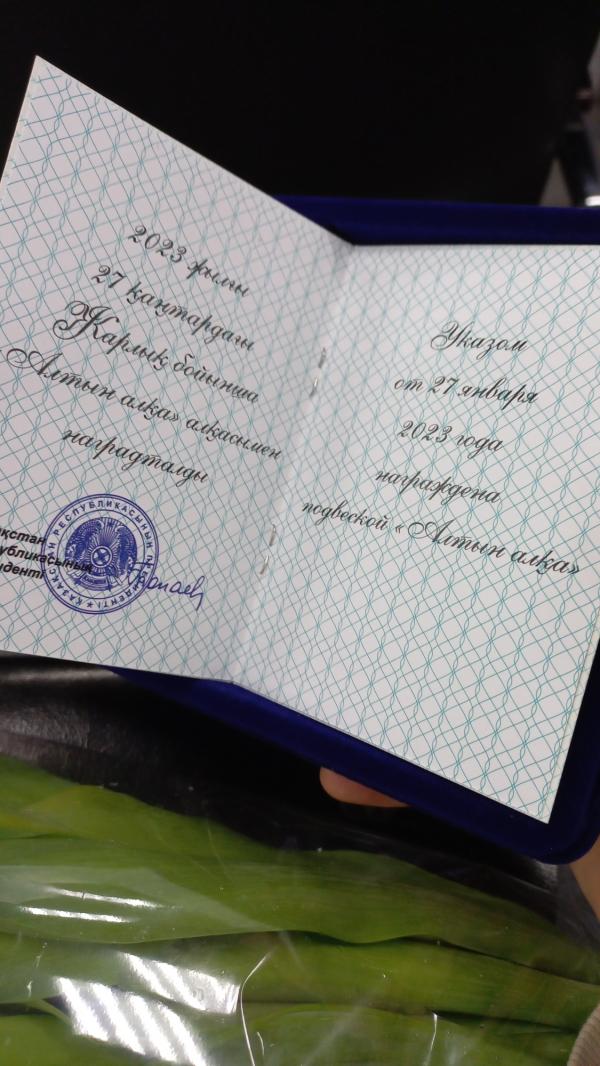 2023 жылғы
27 қаңтардағы
Жарлық бойынша
Алтын алқа» алқасымен
наградталды
ҚАЗАҚСТАН РЕСПУБЛИКАСЫНЫҢ ПРЕЗИДЕНТІ
Указом
от 27 января
2023 года
награждена
подвеской «Алтын алқа»